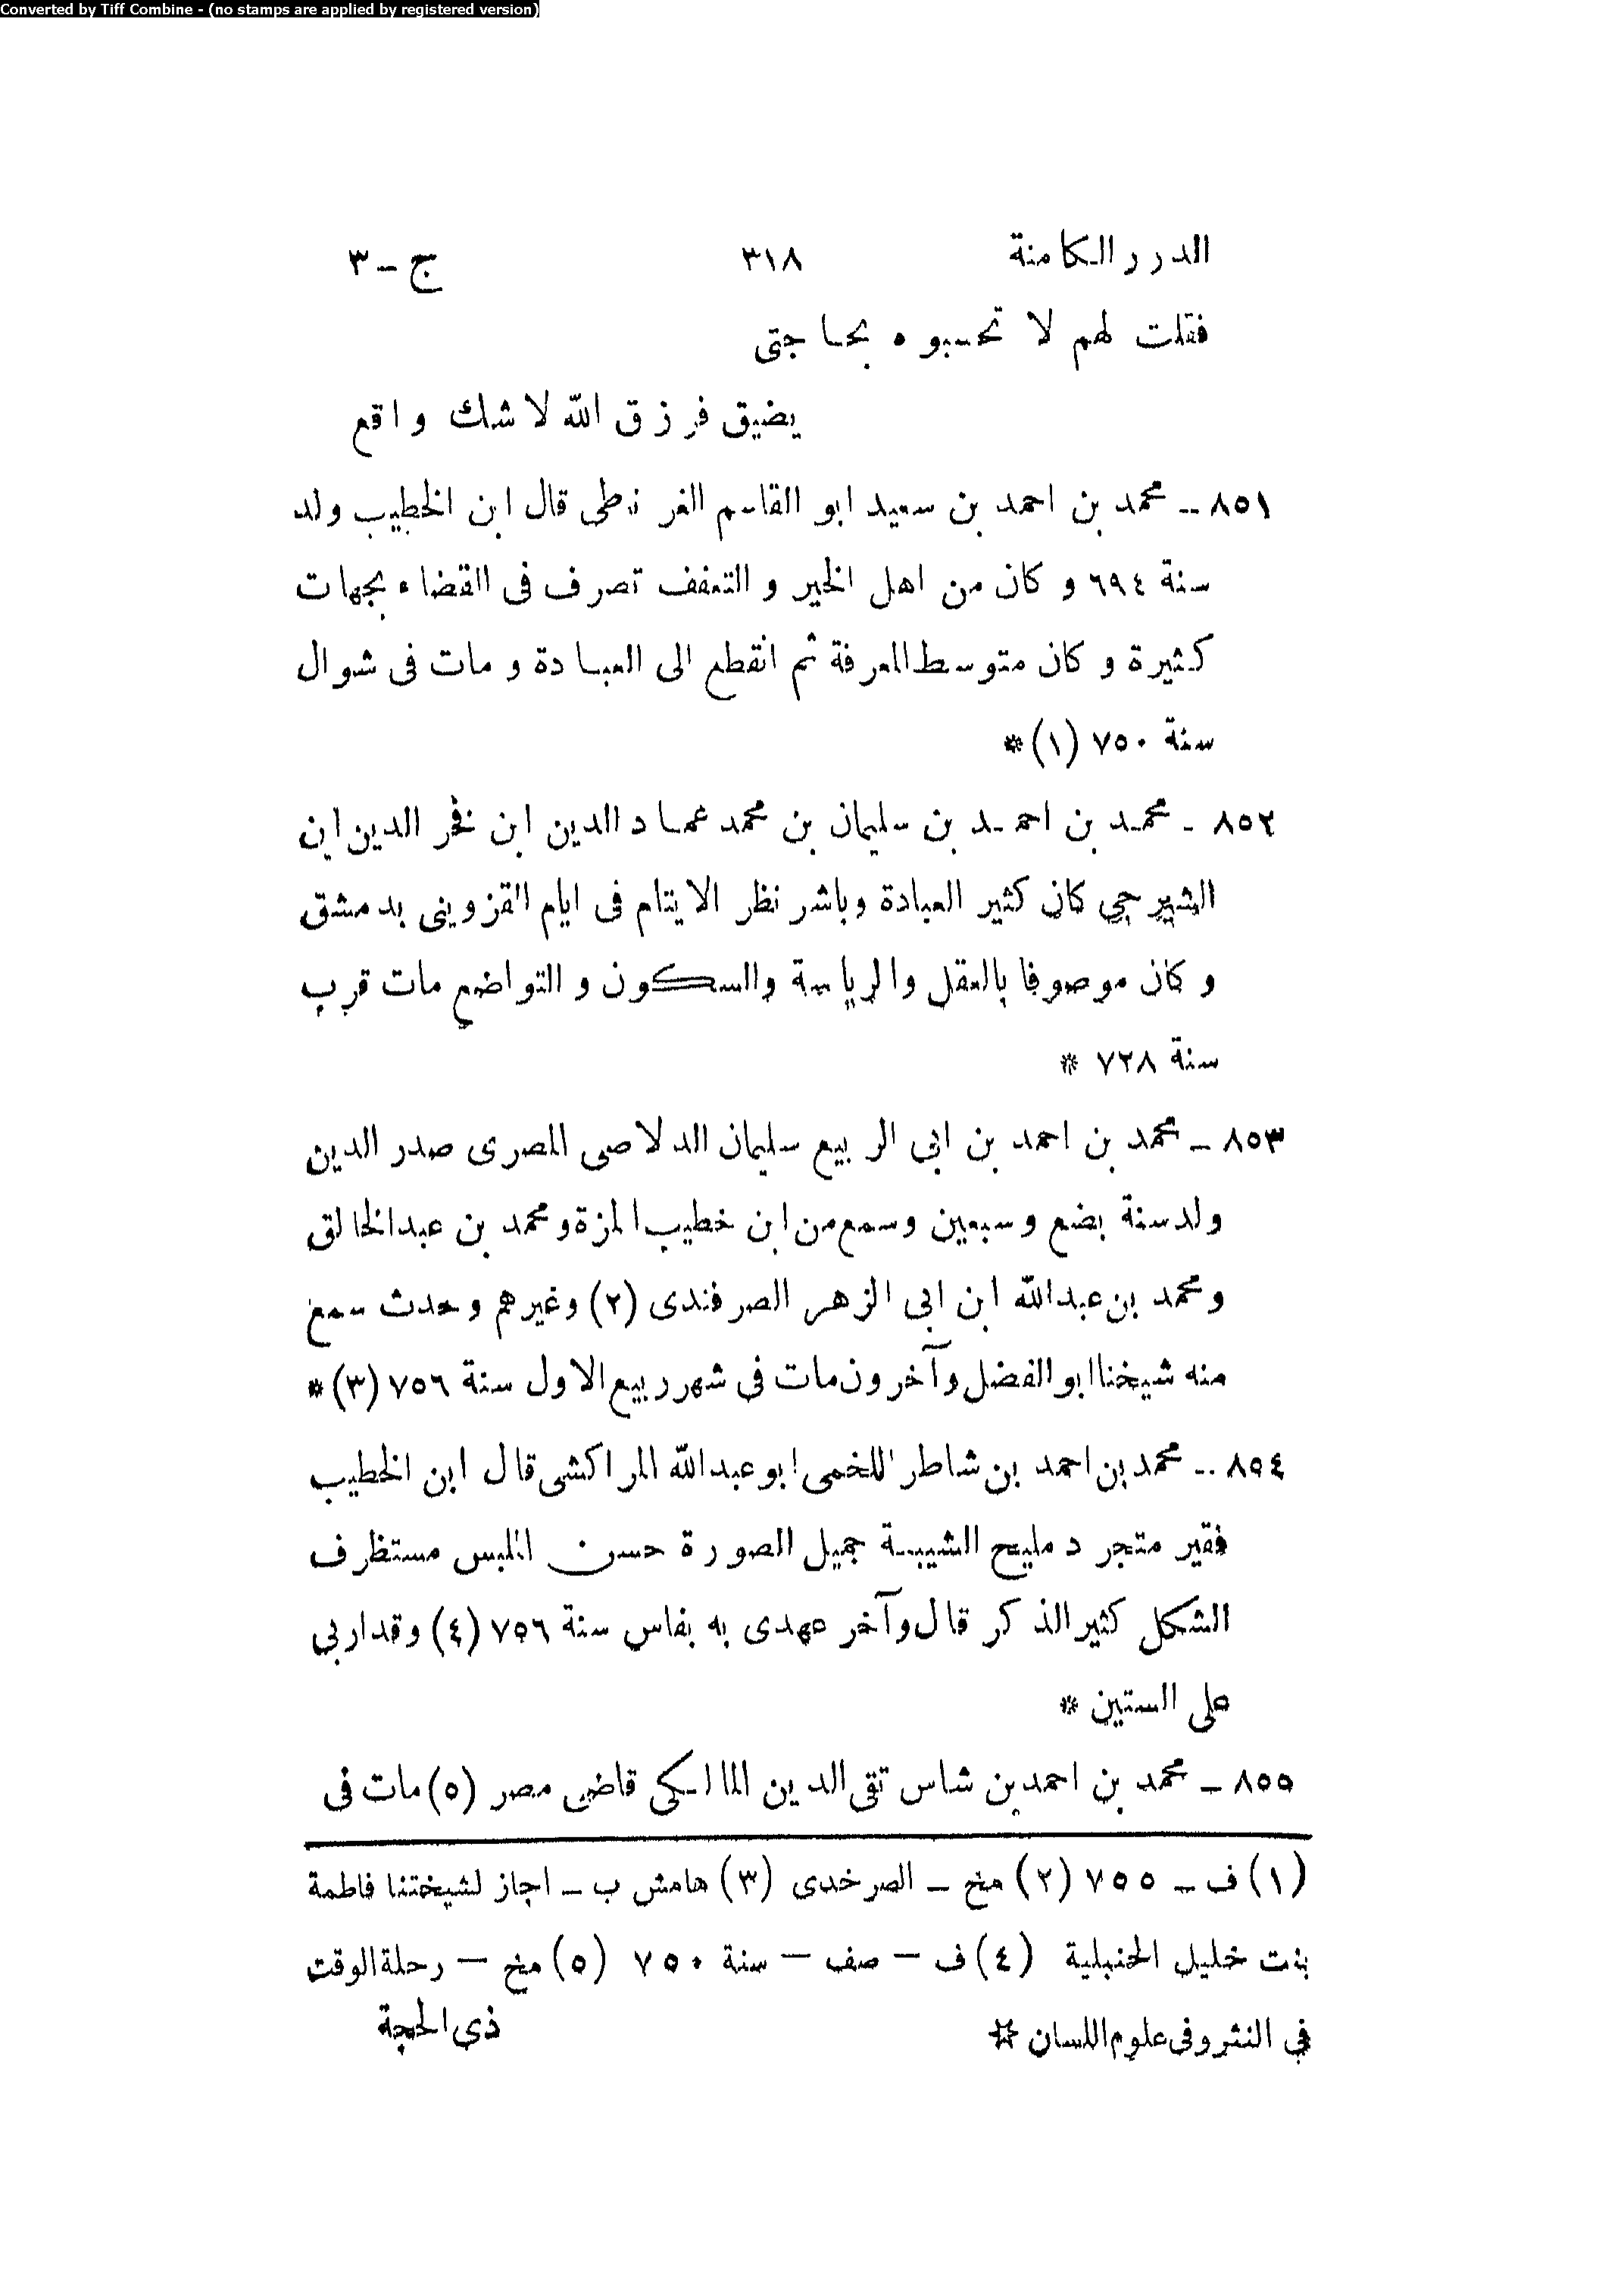 Converted by Tiff Combine - (no stamps are applied by registered version)
الدرر الكامنة ٣١٨ ج - ٣
فقلت لهم لا تحسبوه بحاجتى
يضيق فرزق الله لا شك واقع
٨٥١ - محمد بن احمد بن سعيد ابو القاسم الغرناطى قال ابن الخطيب ولد
سنة ٦٩٤ و كان من اهل الخير و التعفف تصرف فى القضاء بجهات
كثيرة و كان متوسط المعرفة ثم انقطع الى العبادة و مات فى شوال
سنة ٧٥٠ (١) *
٨٥٢ - محمد بن احمد بن سليمان بن محمد عماد الدين ابن فخر الدين ابن
الشيرجي كان كثير العبادة وباشر نظر الايتام فى ايام القزوينى بدمشق
و كان موصوفا بالعقل والرياسة والسكون و التواضع مات قرب
سنة ٧٢٨ *
٨٥٣ - محمد بن احمد بن ابى الربيع سليمان الدلاصى المصرى صدر الدين
ولد سنة بضع و سبعين وسمع من ابن خطيب المزة و محمد بن عبد الخالق
و محمد بن عبد الله ابن ابى الزهر الصرفندى (٢) وغيرهم وحدث سمع
منه شيخنا ابو الفضل وآخرون مات فى شهر ربيع الاول سنة ٧٥٦ (٣) *
٨٥٤ - محمد بن احمد بن شاطر اللخمى ابو عبد الله المراكشى قال ابن الخطيب
فقير متجرد مليح الشيبة جميل الصورة حسن الملبس مستظرف
الشكل كثير الذكر قال وآخر عهدى به بفاس سنة ٧٥٦ (٤) وقد اربى
على الستين *
٨٥٥ - محمد بن احمد بن شاس تقى الدين المالكى قاضى مصر (٥) مات فى
(١) ف - ٧٥٥ (٢) مخ - الصرخدى (٣) هامش ب - اجاز لشيختنا فاطمة
بنت خليل الحنبلية (٤) ف - صف - سنة ٧٥٠ (٥) مخ - رحلة الوقت
في النثر وفى علوم اللسان * ذى الحجة